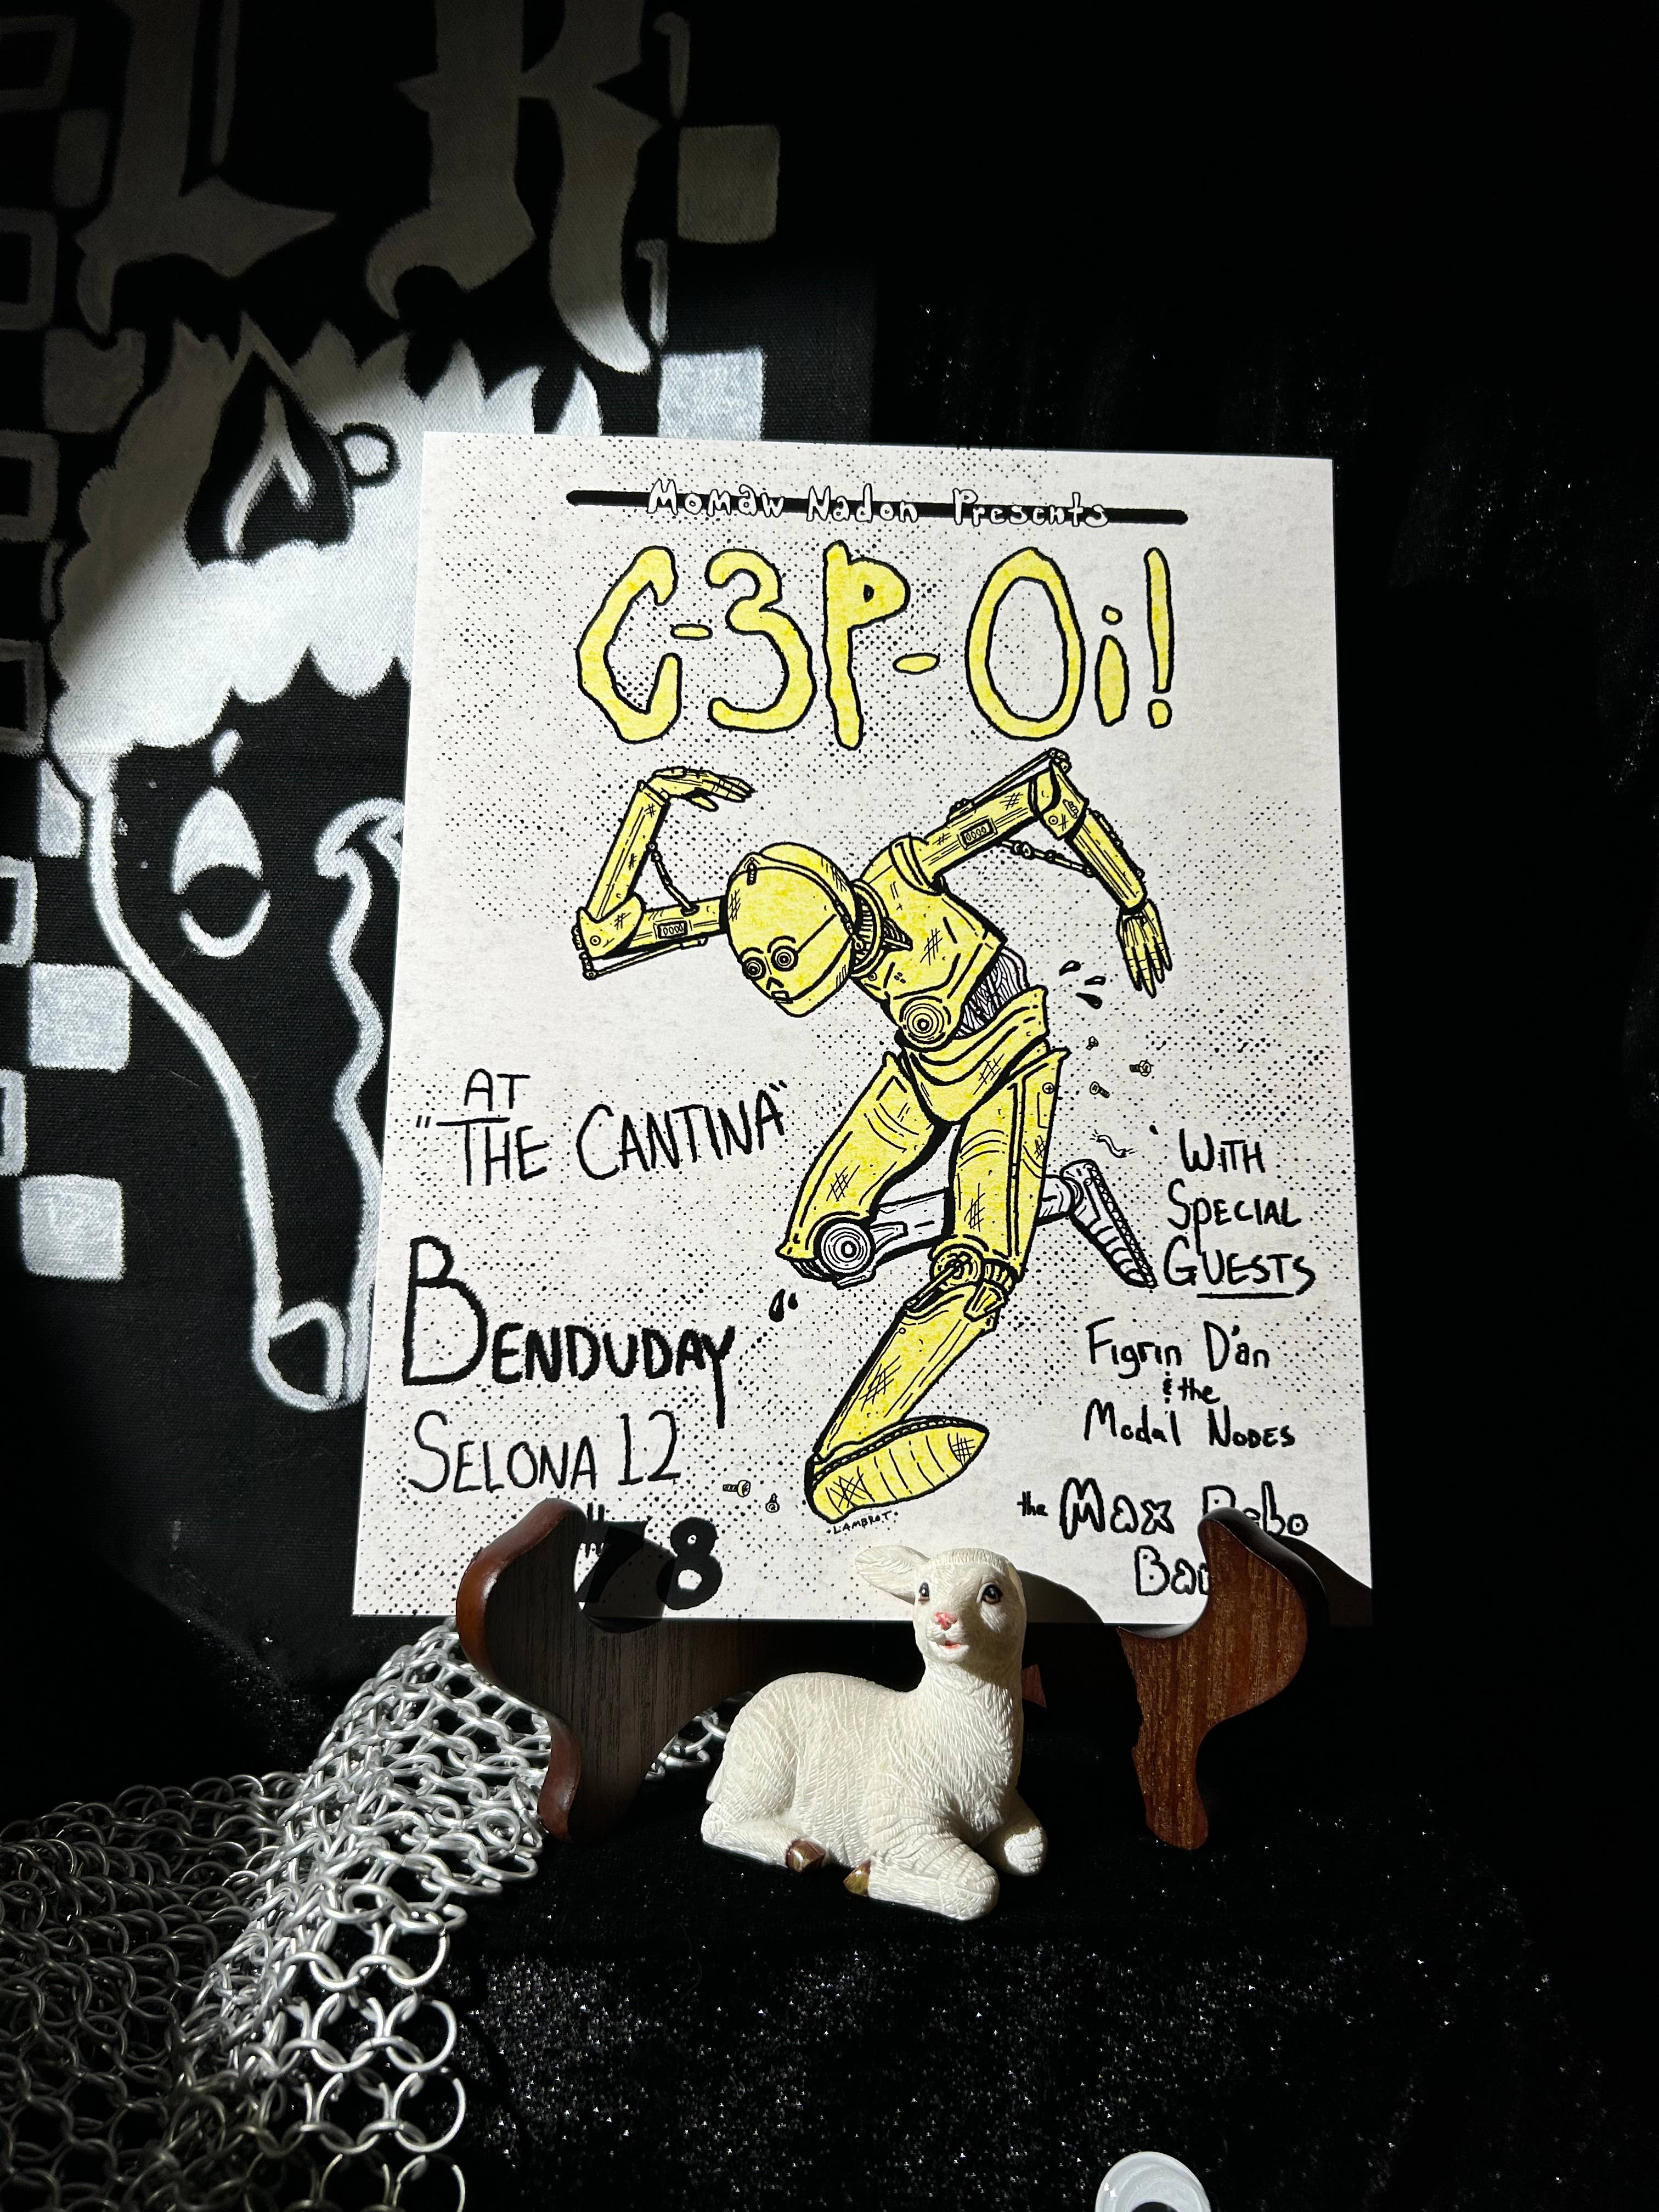 LR
Momaw Nadon Presents
C-3P-Oi!
AT
"THE CANTINA"
BENDUDAY
SELONA 12
"78
WITH
SPECIAL
GUESTS
Figrin D'an
& the
Modal NODES
the Max Rebo
·LAMBROT·